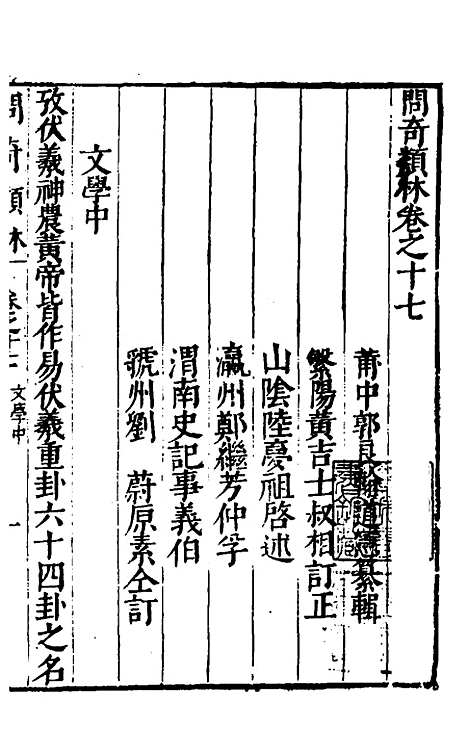 問奇類林卷之十七
莆中郭良翰道憲纂輯
繁陽黃吉士叔相訂正
山陰陸夢祖啓述
瀛州鄭繼芳仲孚
渭南史記事義伯
虢州劉蔚原素仝訂
文學中
攷伏羲神農黃帝皆作易伏羲重卦六十四卦之名
問奇類林 卷之十七 文學中 一